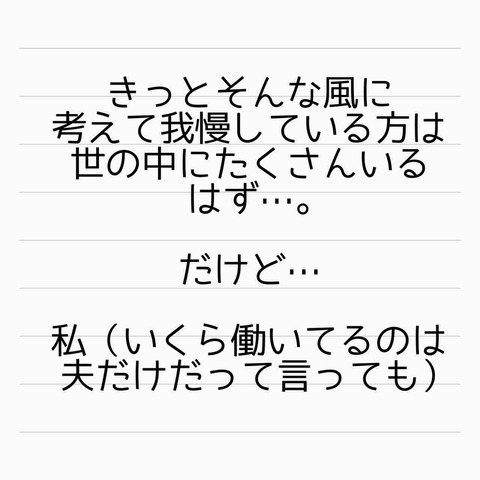 きっとそんな風に
考えて我慢している方は
世の中にたくさんいる
はず…。
だけど…
私（いくら働いてるのは
夫だけだって言っても）